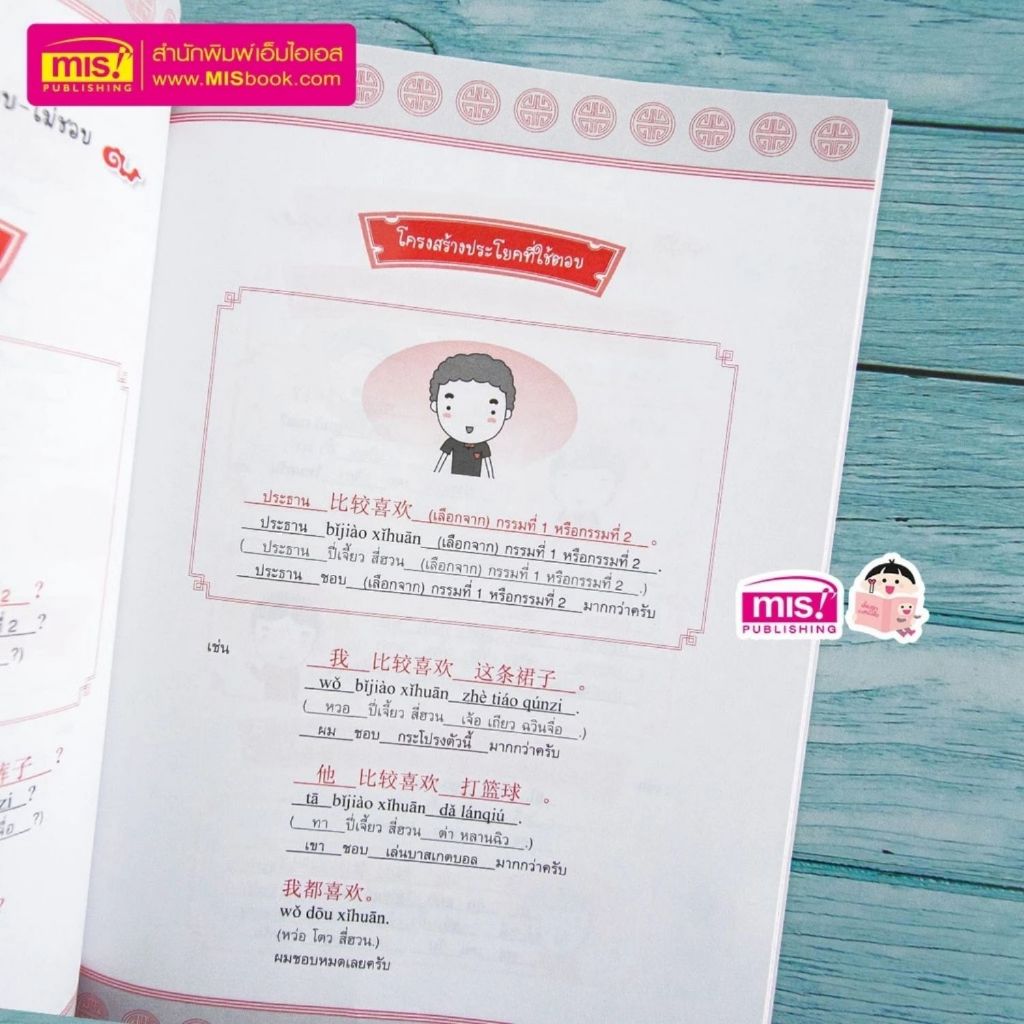 mis!
PUBLISHING
สำนักพิมพ์เอ็มไอเอส
www.MISbook.com
-ไม่ชอบ
โครงสร้างประโยคที่ใช้ตอบ
ประธาน 比较喜欢 (เลือกจาก) กรรมที่ 1 หรือกรรมที่ 2 。
ประธาน bǐjiào xǐhuān (เลือกจาก) กรรมที่ 1 หรือกรรมที่ 2 .
( ประธาน ปี่เจี้ยว สี่ฮวน (เลือกจาก) กรรมที่ 1 หรือกรรมที่ 2 .)
ประธาน ชอบ (เลือกจาก) กรรมที่ 1 หรือกรรมที่ 2 มากกว่าครับ
เช่น
我 比较喜欢 这条裙子 。
wǒ bǐjiào xǐhuān zhè tiáo qúnzi .
( หวอ ปี่เจี้ยว สี่ฮวน เจ้อ เถียว ฉวินจื่อ .)
ผม ชอบ กระโปรงตัวนี้ มากกว่าครับ
他 比较喜欢 打篮球 。
tā bǐjiào xǐhuān dǎ lánqiú .
( ทา ปี่เจี้ยว สี่ฮวน ต่า หลานฉิว .)
เขา ชอบ เล่นบาสเกตบอล มากกว่าครับ
我都喜欢。
wǒ dōu xǐhuān.
(หว่อ โตว สี่ฮวน.)
ผมชอบหมดเลยครับ
mis!
PUBLISHING
2 ?
2 ?
?)
子 ?
zi ?
?)
?